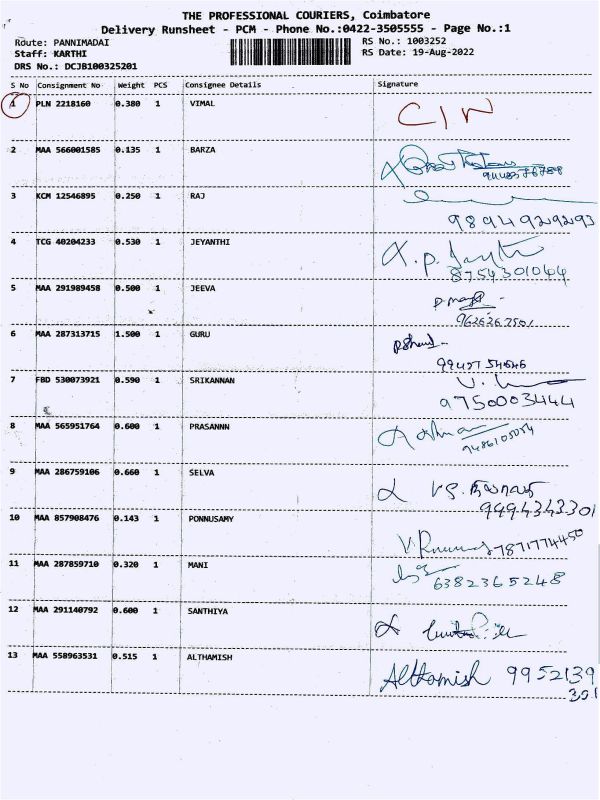 THE PROFESSIONAL COURIERS, Coimbatore
Delivery Runsheet - PCM - Phone No.:0422-3505555 - Page No.:1
Route: PANNIMADAI
RS No.: 1003252
Staff: KARTHI
RS Date: 19-Aug-2022
DRS No.: DCJB100325201
S No Consignment No Weight PCS Consignee Details Signature
1 PLN 2218160 0.380 1 VIMAL
2 MAA 566001585 0.135 1 BARZA
3 KCM 12546895 0.250 1 RAJ
98949 29293
4 TCG 40204233 0.530 1 JEYANTHI
8754301044
5 MAA 291989458 0.500 1 JEEVA
6 MAA 287313715 1.500 1 GURU
7 FBD 530073921 0.590 1 SRIKANNAN
9750003444
8 MAA 565951764 0.600 1 PRASANNN
9486105054
9 MAA 286759106 0.660 1 SELVA
9994343301
10 MAA 857908476 0.143 1 PONNUSAMY
7871774450
11 MAA 287859710 0.320 1 MANI
6382365248
12 MAA 291140792 0.600 1 SANTHIYA
13 MAA 558963531 0.515 1 ALTHAMISH
Althamish 9952139
301